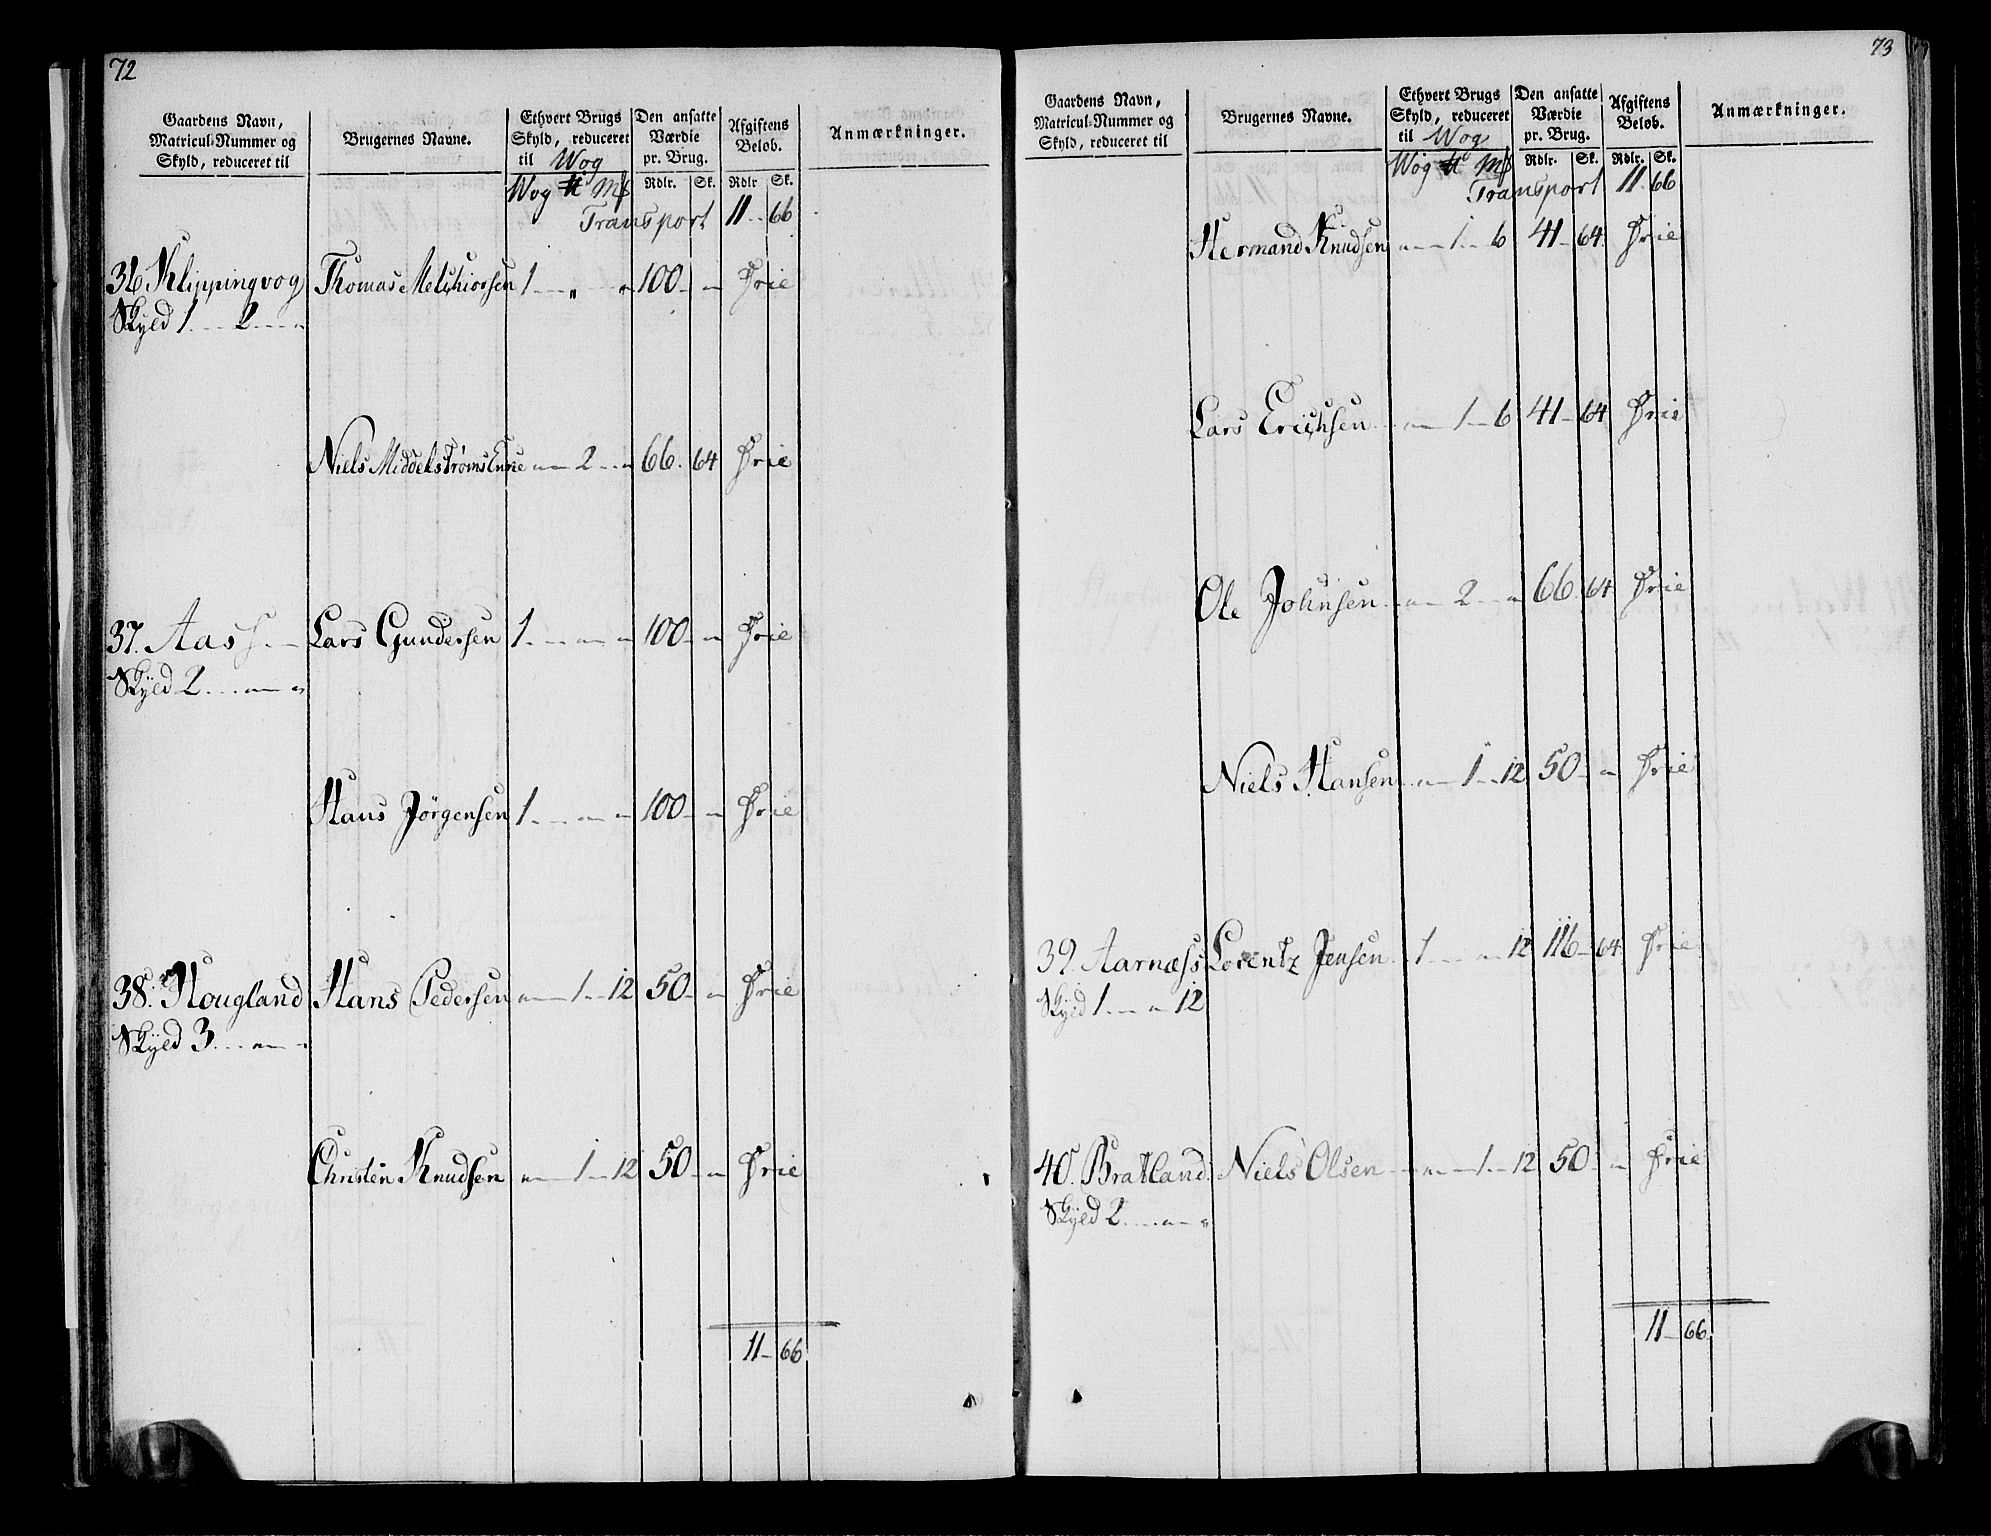 72
Gaardens Navn, Matricul-Nummer og Skyld, reduceret til | Brugernes Navne. | Ethvert Brugs Skyld, reduceret til Wog | Den ansatte Værdie pr. Brug. | Afgiftens Beløb. | Anmærkninger.
Wog ℔ Mk | Rdlr. | Sk. | Rdlr | Sk.
Transport 11 66
36 Klippingvog Thomas Melchiorsen 1 " " 100 " Frie
Skyld 1 2 "
Niels Middelstrøms Enke " 2 " 66 64 Frie
37. Aas Lars Gundersen 1 " " 100 " Frie
Skyld 2 " "
Hans Jörgensen 1 " " 100 " Frie
38. Hougland Hans Pedersen " 1 12 50 " Frie
Skyld 3 " "
Christen Knudsen " 1 12 50 " Frie
11 66
73
Gaardens Navn, Matricul-Nummer og Skyld, reduceret til | Brugernes Navne. | Ethvert Brugs Skyld, reduceret til Wog | Den ansatte Værdie pr. Brug. | Afgiftens Beløb. | Anmærkninger.
Wog ℔ Mk | Rdlr. | Sk. | Rdlr. | Sk.
Transport 11 66
Hermand Knudsen " 1 6 41 64 Frie
Lars Erichsen " 1 6 41 64 Frie
Ole Johnsen " 2 " 66 64 Frie
Niels Hansen " 1 12 50 " Frie
39. Aarnæss Lorentz Jensen 1 " 12 116 64 Frie
Skyld 1 " 12
40. Bratland Niels Olsen " 1 12 50 " Frie
Skyld 2 " "
11 66